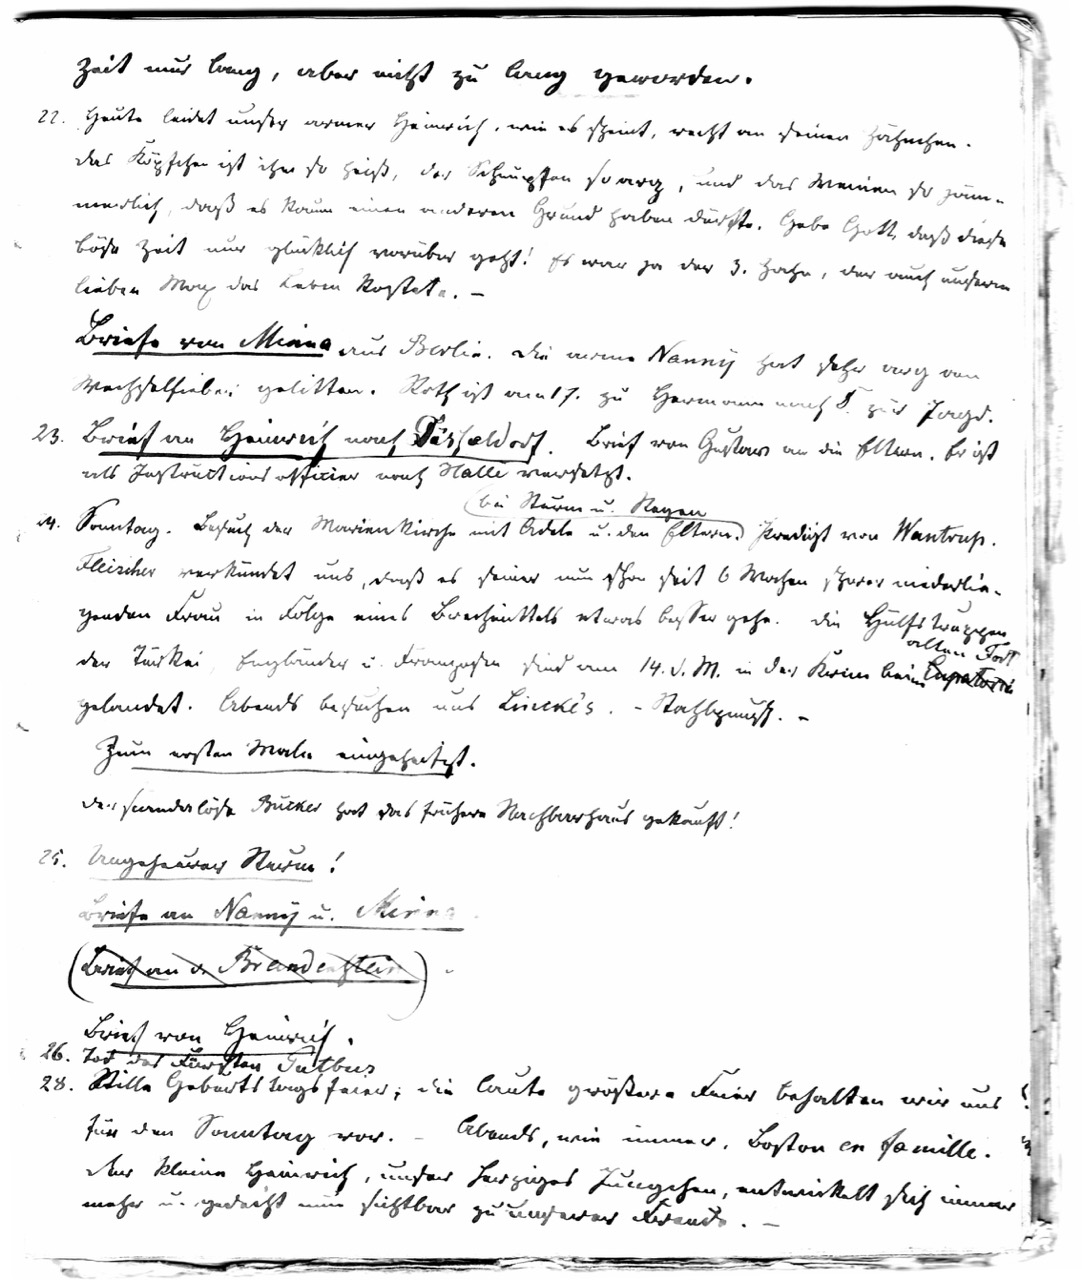 Zeit nur lang, aber nicht zu lang geworden.
22. Heute leidet unser armer Heinrich, wie es scheint, recht an seinen Zähnchen.
Das Köpfchen ist ihm so heiß, der Schnupfen so arg, und das Weinen so jäm-
merlich, daß es kaum einen anderen Grund haben dürfte. Gebe Gott, daß diese
böse Zeit nur glücklich vorüber geht! Es war ja der 3. Zahn, der auch unserm
lieben Max das Leben kostete. –
Briefe von Minna aus Berlin. Die arme Nanny hat sehr arg am
Wechselfieber gelitten. Roth ist am 17. zu Hermann nach S. zur Jagd.
23. Brief an Heinrich nach Düsseldorf. Brief von Gustav an die Eltern. Er ist
als Instructionsofficier nach Halle versetzt.
(bei Sturm u. Regen
24. Sonntag. Besuch der Marienkirche mit Adele u. den Eltern.) Predigt von Wantrup.
Fleischer verkündet uns, daß es seiner nun schon seit 6 Wochen schwer niederlie-
genden Frau in Folge eines Brechmittels etwas besser gehe. Die Hülfstruppen
alten Fort
der Türkei, Engländer u. Franzosen sind am 14. d. M. in der Krim beim Eupatoria
gelandet. Abends besuchen uns Lincke's. – Stachlpunsch. –
Zum ersten Male eingeheitzt.
Der scandalöse Bücker hat das frühere Nachbarhaus gekauft!
25. Ungeheurer Sturm!
Briefe an Nanny u. Minna.
(Brief an v. Brandenstein)
Brief von Heinrich.
26. Tod des Fürsten Putbus
28. Stille Geburtstagsfeier; die laute größere Feier behalten wir uns
für den Sonntag vor. – Abends, wie immer, Boston en famille.
Der kleine Heinrich, unser herziges Jüngchen, entwickelt sich immer
mehr u. gedeiht nun sichtbar zu unserer Freude. –